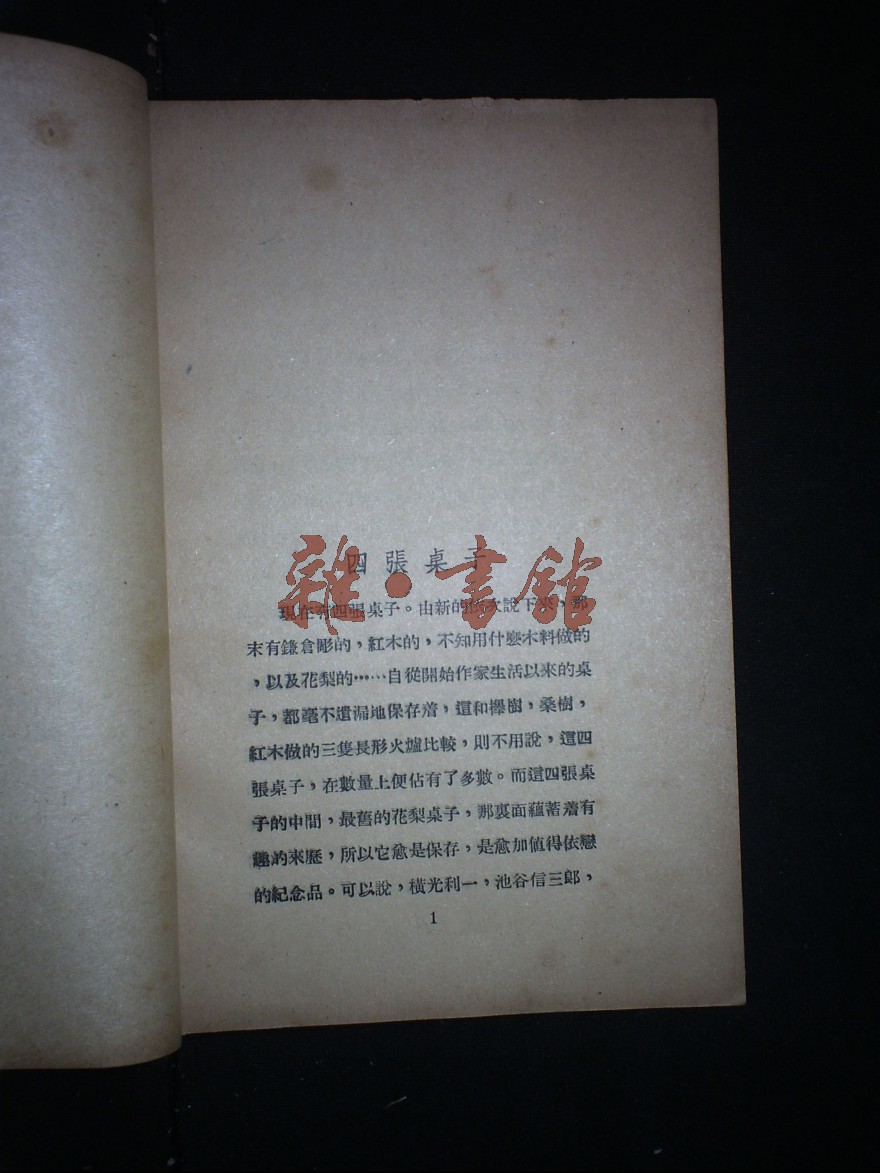 四張桌子
雜·書館
現在有四張桌子。由新的依次說下來，那
末有鎌倉彫的，紅木的，不知用什麼木料做的
，以及花梨的……自從開始作家生活以來的桌
子，都毫不遺漏地保存着，這和櫸樹，桑樹，
紅木做的三隻長形火爐比較，則不用說，這四
張桌子，在數量上便佔有了多數。而這四張桌
子的中間，最舊的花梨桌子，那裏面蘊蓄着有
趣的來歷，所以它愈是保存，是愈加值得依戀
的紀念品。可以說，橫光利一，池谷信三郎，
1